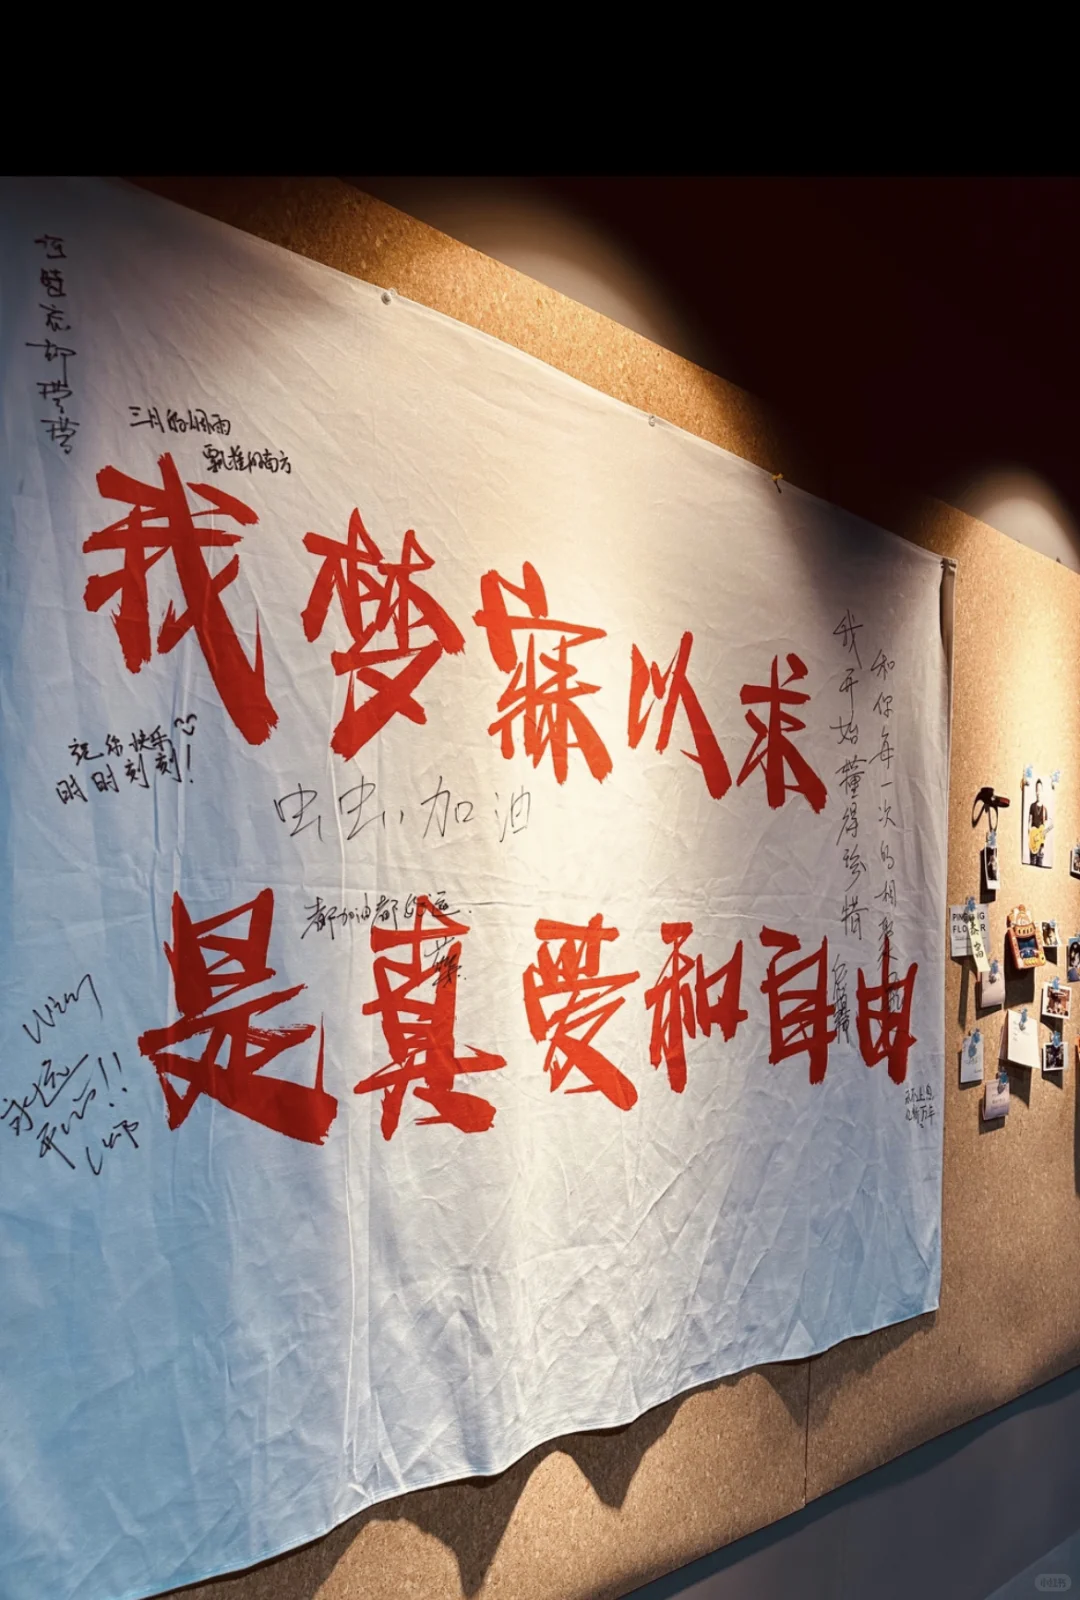 三月的烟雨
飘摇的南方
我梦寐以求
是真爱和自由
祝你快乐
时时刻刻!
虫虫,加油
都加油都好运.
我开始懂得珍惜
和你每一次的相聚
永远
开心!!